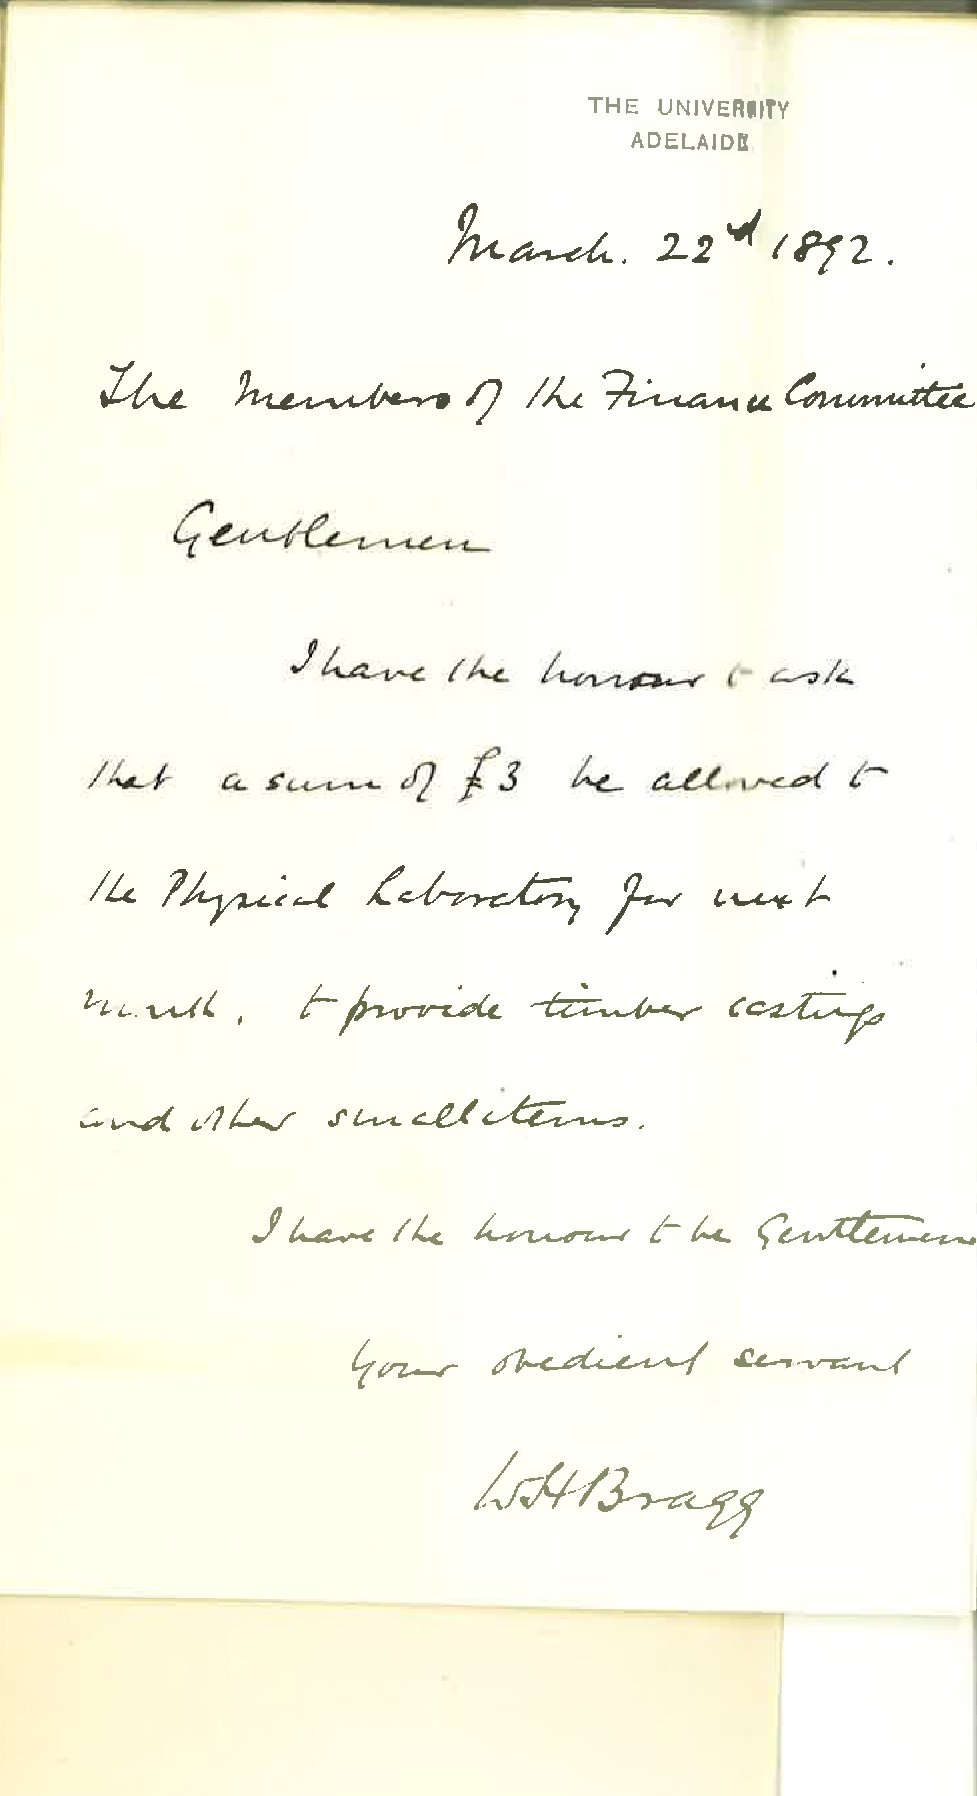 THE UNIVERSITY
ADELAIDE
March. 22nd 1892.
The Members of the Finance Committee
Gentlemen
I have the honour to ask
that a sum of £3 be allowed to
the Physical Laboratory for next
month, to provide timber castings
and other small items.
I have the honour to be Gentlemen
Your obedient servant
WHBragg